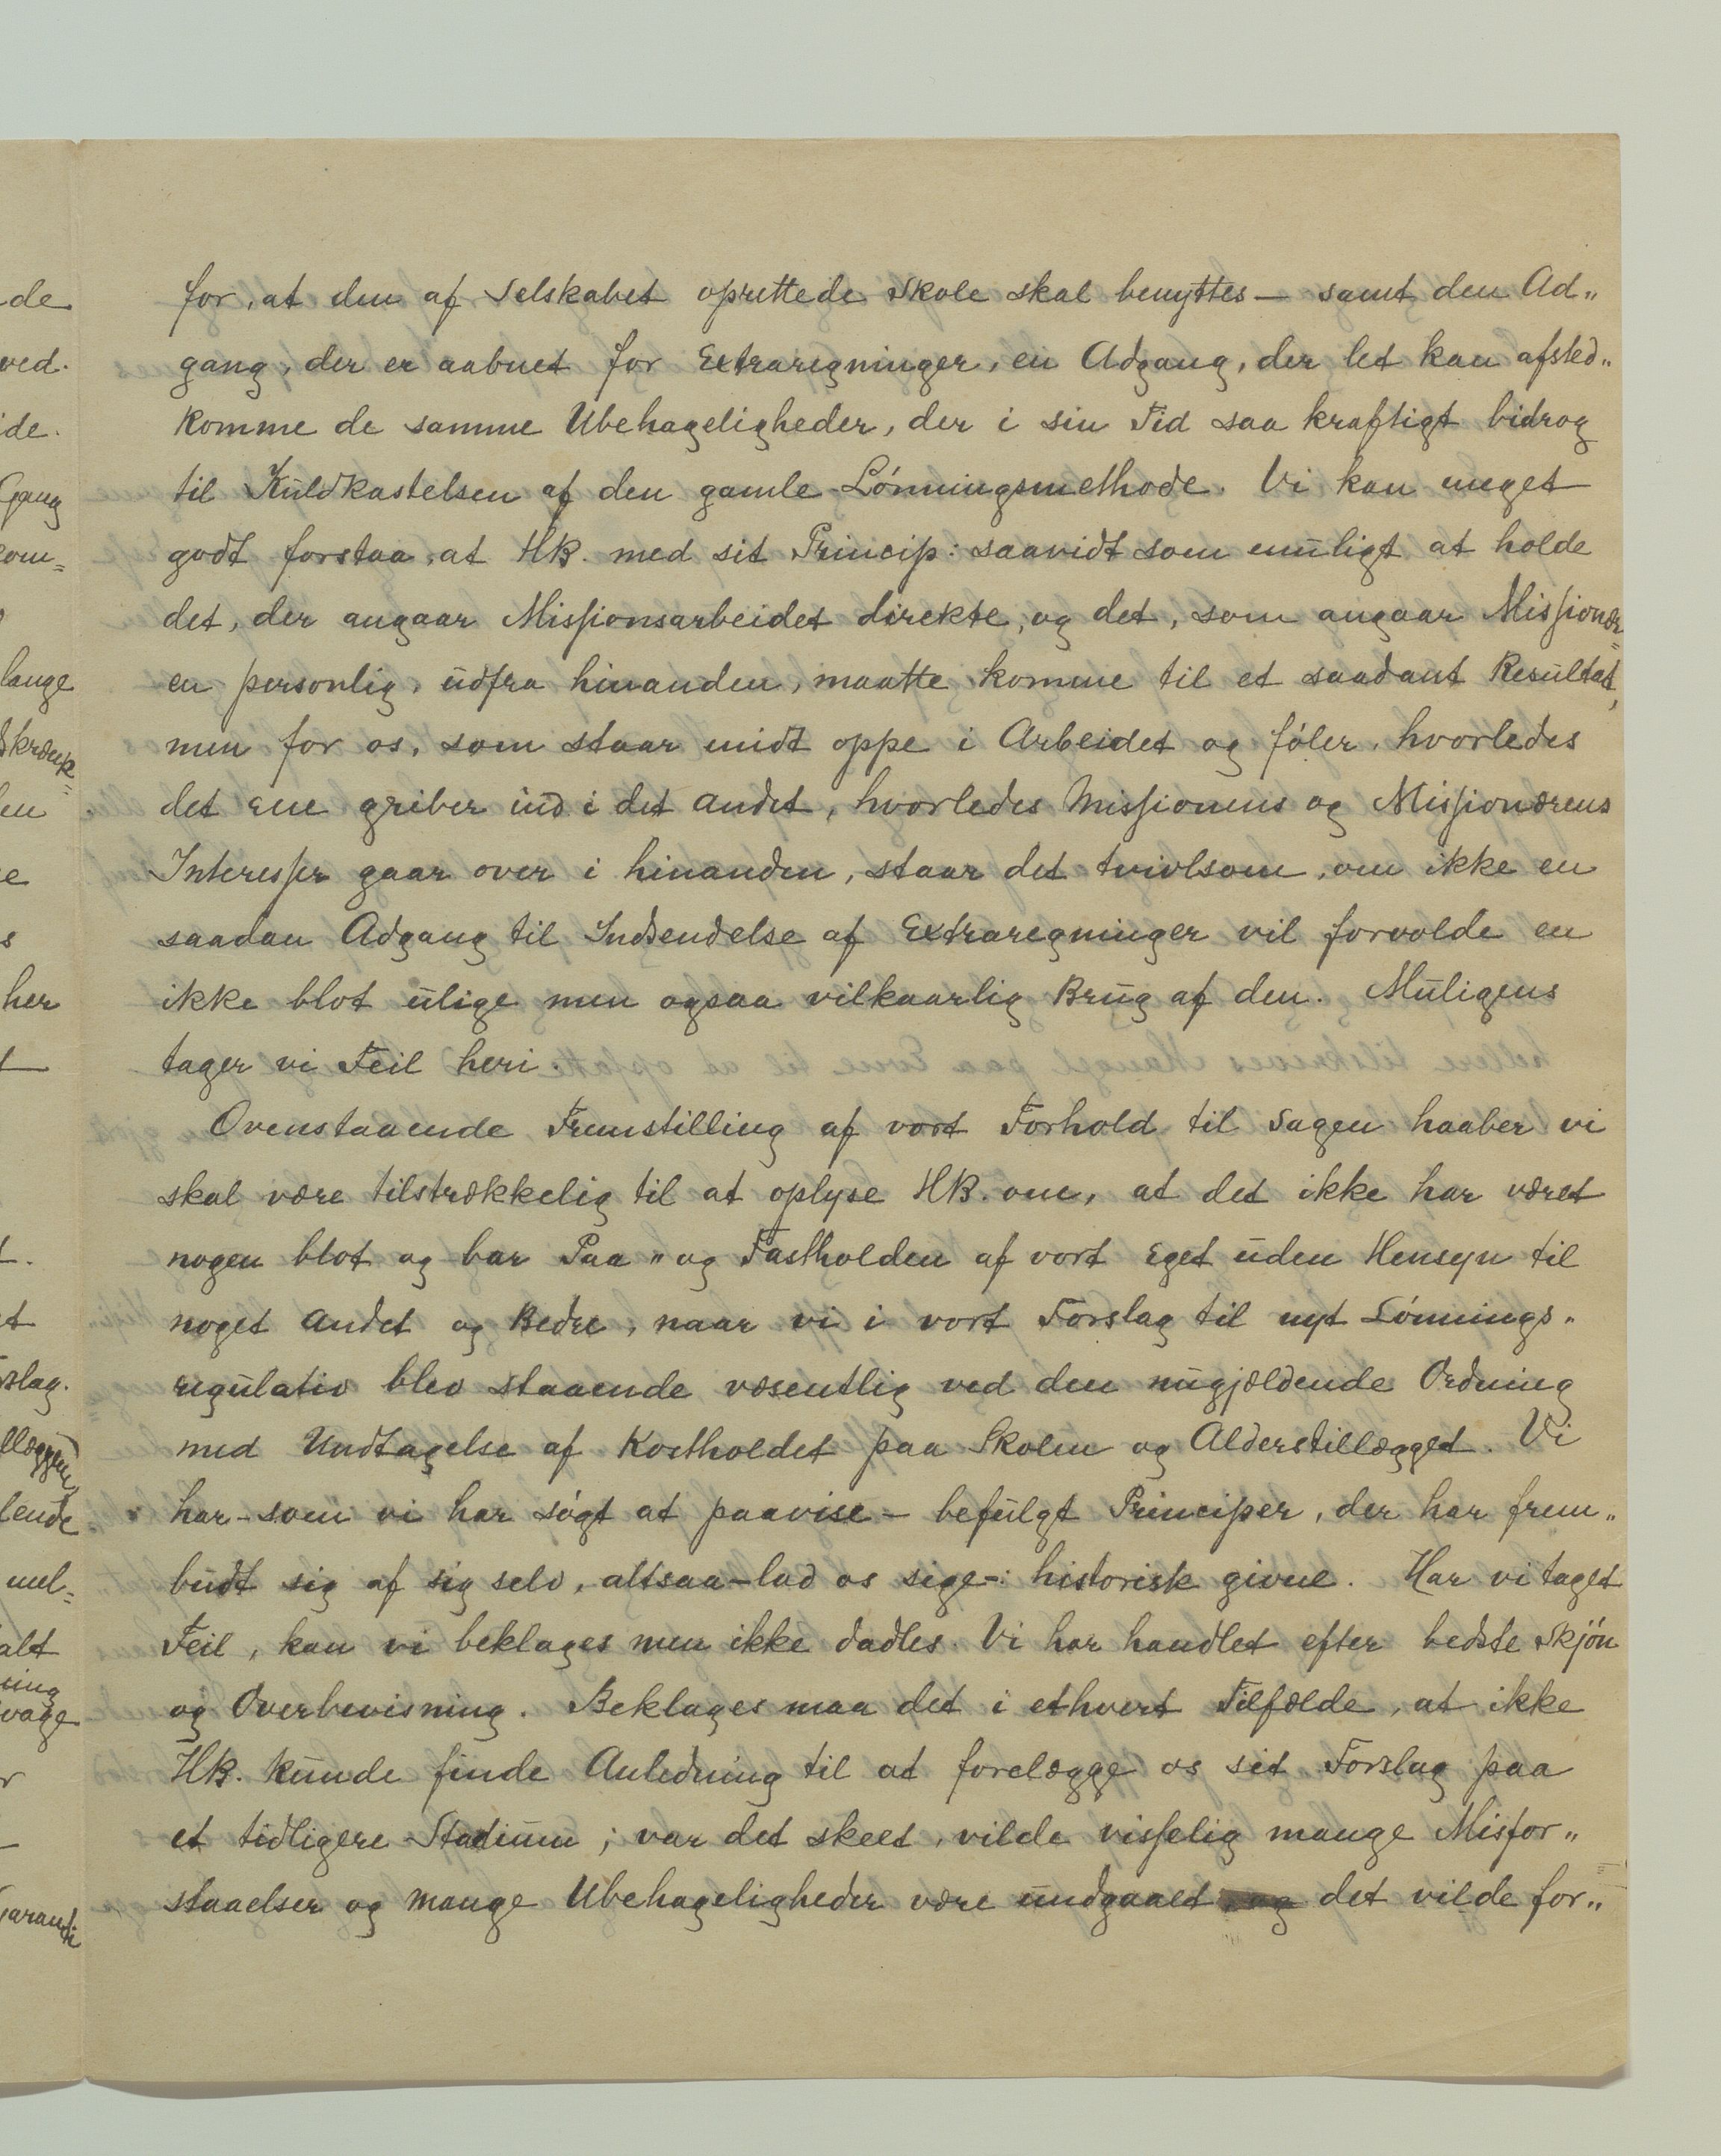 for, at den af Selskabet oprettede Skole skal benyttes — samt den Ad„
gang, der er aabnet for Extraregninger, en Adgang, der let kan afsted„
komme de samme Ubehageligheder, der i sin Tid saa kraftigt bidrog
til Kuldkastelsen af den gamle Lónningsmethode. Vi kan meget
godt forstaa, at HB. med sit Princip: saavidt som muligt at holde
det, der angaar Missionsarbeidet direkte, og det, som angaar Missionær=
en personlig, udfra hinanden, maatte komme til et saadant Resultat,
men for os, som staar midt oppe i Arbeidet og fóler, hvorledes
det ene griber ind i det andet, hvorledes Missionens og Missionærens
Interesser gaar over i hinanden, staar det tvivlsom, om ikke en
saadan Adgang til Indsendelse af Extraregninger vil forvolde en
ikke blot ulige men ogsaa vilkaarlig Brug af den. Muligens
tager vi Feil heri.
Ovenstaaende Fremstilling af vort Forhold til Sagen haaber vi
skal være tilstrækkelig til at oplyse HB. om, at det ikke har været
nogen blot og bar Paa„ og Fastholden af vort Eget uden Hensyn til
noget Andet og Bedre, naar vi i vort Forslag til nyt Lónnings„
regulativ blev staaende væsentlig ved den nugjældende Ordning
med Undtagelse af Kostholdet paa Skolen og Alderstillægget. Vi
har – som vi har sógt at paavise – befulgt Principer, der har frem„
budt sig af sig selv, altsaa – lad os sige –: historisk givne. Har vi taget
Feil, kan vi beklages men ikke dadles. Vi har handlet efter bedste Skjón
og Overbevisning. Beklages maa det i ethvert Tilfælde, at ikke
HB. kunde finde Anledning til at forelægge os sit Forslag paa
et tidligere Stadium; var det skeet, vilde visselig mange Misfor„
staaelser og mange Ubehageligheder være undgaaet, og det vilde for„
de
ved.
ide.
Gang
kom=
lange
skrænk=
en
e
s
her
t.
et
slag.
llæggene,
lende
mel=
alt
ning
vage
r
Garanti